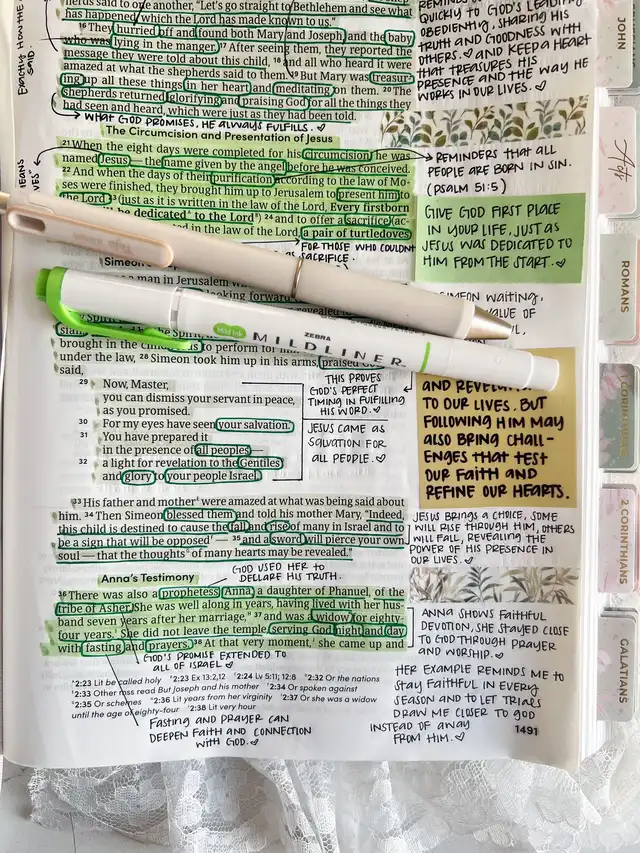 herds said to one another, "Let's go straight to Bethlehem and see
what has happened, which the Lord has made known to us."
16 They hurried off and found both Mary and Joseph, and the baby
who was lying in the manger. 17 After seeing them, they reported the
message they were told about this child, 18 and all who heard it were
amazed at what the shepherds said to them. 19 But Mary was treasur-
ing up all these things in her heart and meditating on them. 20 The
shepherds returned, glorifying and praising God for all the things they
had seen and heard, which were just as they had been told.
→ WHAT GOD PROMISES, HE ALWAYS FULFILLS. ♡
The Circumcision and Presentation of Jesus
21 When the eight days were completed for his circumcision, he was
named Jesus — the name given by the angel before he was conceived.
22 And when the days of their purification according to the law of Mo-
ses were finished, they brought him up to Jerusalem to present him to
the Lord 23 (just as it is written in the law of the Lord, Every firstborn
will be dedicated to the Lord) 24 and to offer a sacrifice (ac-
in the law of the Lord, a pair of turtledoves
FOR THOSE WHO COULDN'T
SACRIFICE.
Simeon's
a man in Jerusalem
looking forward
the Spirit,
brought in the child Jesus to perform for him
under the law, 28 Simeon took him up in his arms, praised God
said,
29 Now, Master,
you can dismiss your servant in peace,
as you promised.
30 For my eyes have seen your salvation.
31 You have prepared it
in the presence of all peoples—
32 a light for revelation to the Gentiles
and glory to your people Israel.
THIS PROVES
GOD'S PERFECT
TIMING IN FULFILLING
HIS WORD. ♡
JESUS CAME AS
SALVATION FOR
ALL PEOPLE. ♡
33 His father and mother were amazed at what was being said about
him. 34 Then Simeon blessed them and told his mother Mary, "Indeed,
this child is destined to cause the fall and rise of many in Israel and to
be a sign that will be opposed — 35 and a sword will pierce your own
soul — that the thoughts of many hearts may be revealed."
GOD USED HER TO
DECLARE HIS TRUTH.
Anna's Testimony
36 There was also a prophetess, Anna, a daughter of Phanuel, of the
tribe of Asher. She was well along in years, having lived with her hus-
band seven years after her marriage, 37 and was a widow for eighty-
four years. She did not leave the temple, serving God night and day
with fasting and prayers. 38 At that very moment, she came up and
GOD'S PROMISE EXTENDED TO
ALL OF ISRAEL ♡
2:23 Lit be called holy 2:23 Ex 13:2,12 2:24 Lv 5:11; 12:8 2:32 Or the nations
2:33 Other mss read But Joseph and his mother 2:34 Or spoken against
2:35 Or schemes 2:36 Lit years from her virginity 2:37 Or she was a widow
until the age of eighty-four 2:38 Lit very hour
FASTING AND PRAYER CAN
DEEPEN FAITH AND CONNECTION
WITH GOD. ♡
EXACTLY HOW THE
SAID.
QUICKLY TO GOD'S LEADING
OBEDIENTLY, SHARING HIS
TRUTH AND GOODNESS WITH
OTHERS. ♡ AND KEEP A HEART
THAT TREASURES HIS
PRESENCE AND THE WAY HE
WORKS IN OUR LIVES. ♡
REMINDERS THAT ALL
PEOPLE ARE BORN IN SIN.
(PSALM 51:5)
GIVE GOD FIRST PLACE
IN YOUR LIFE, JUST AS
JESUS WAS DEDICATED TO
HIM FROM THE START. ♡
SIMEON WAITING,
VALUE OF
AND REVELATION
TO OUR LIVES. BUT
FOLLOWING HIM MAY
ALSO BRING CHALL-
ENGES THAT TEST
OUR FAITH AND
REFINE OUR HEARTS.
JESUS BRINGS A CHOICE, SOME
WILL RISE THROUGH HIM, OTHERS
WILL FALL, REVEALING THE
POWER OF HIS PRESENCE IN
OUR LIVES. ♡
ANNA SHOWS FAITHFUL
DEVOTION, SHE STAYED CLOSE
TO GOD THROUGH PRAYER
AND WORSHIP. ♡
HER EXAMPLE REMINDS ME TO
STAY FAITHFUL IN EVERY
SEASON AND TO LET TRIALS
DRAW ME CLOSER TO GOD
INSTEAD OF AWAY
FROM HIM. ♡
1491
Mild ink
ZEBRA
MILDLINER
JOHN
Acts
ROMANS
1 CORINTHIANS
2 CORINTHIANS
GALATIANS